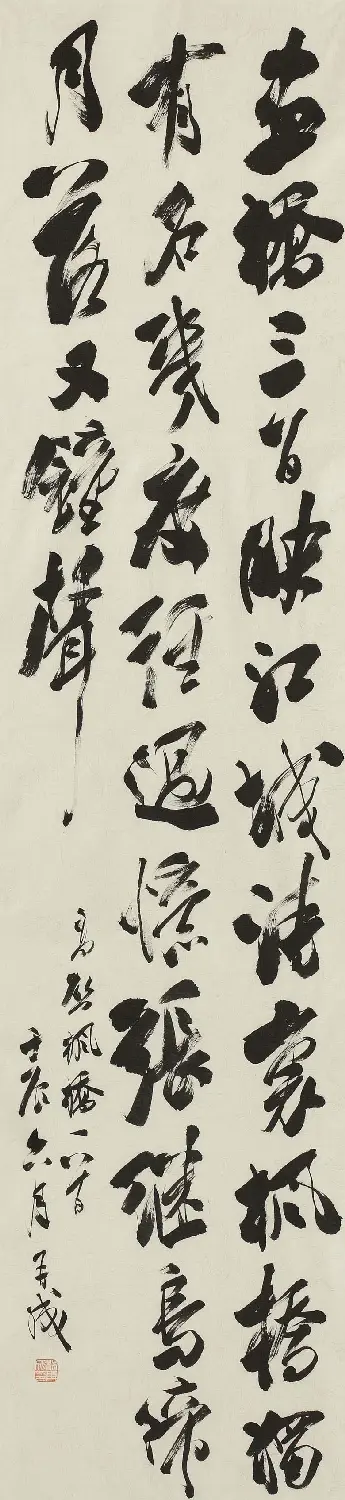 畫橋三百映江城詩裏楓橋獨
有名幾度經過憶張繼烏啼
月落又鐘聲
高啟楓橋一首
壬辰六月